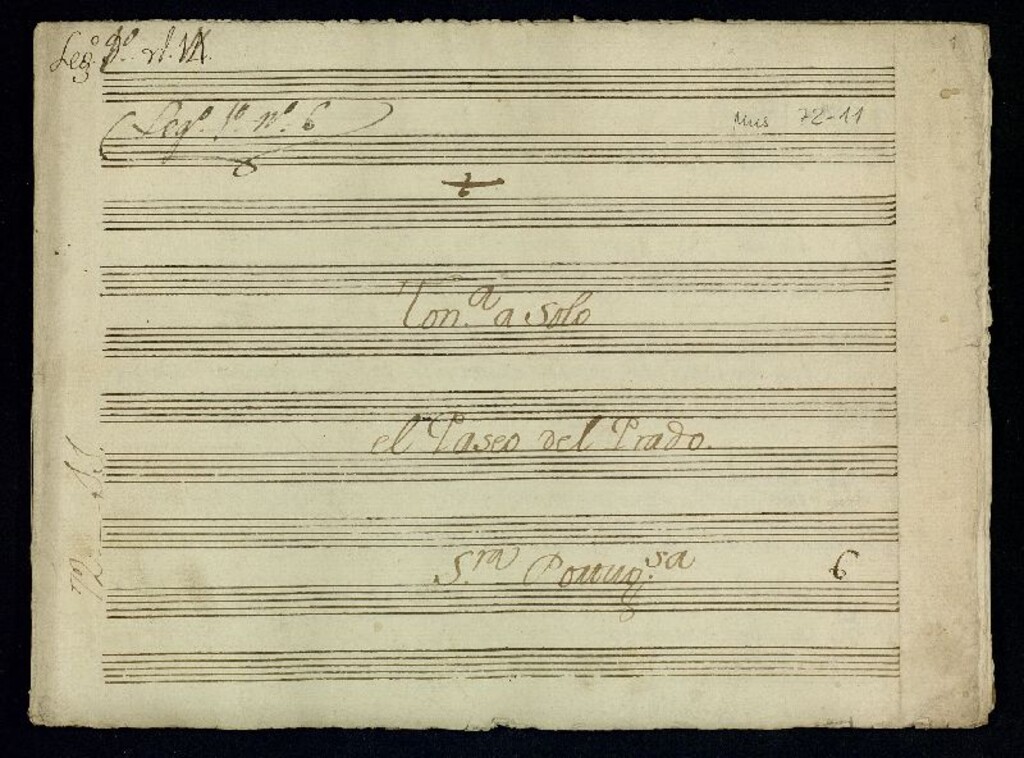 1
Leg.º
Mus 72-11
Leg.º 1º n.º 6
Ton.ª a Solo
el Paseo del Prado.
S.ra Portug.sa
6